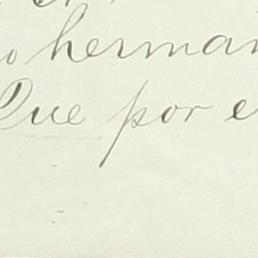 herman
Que por e